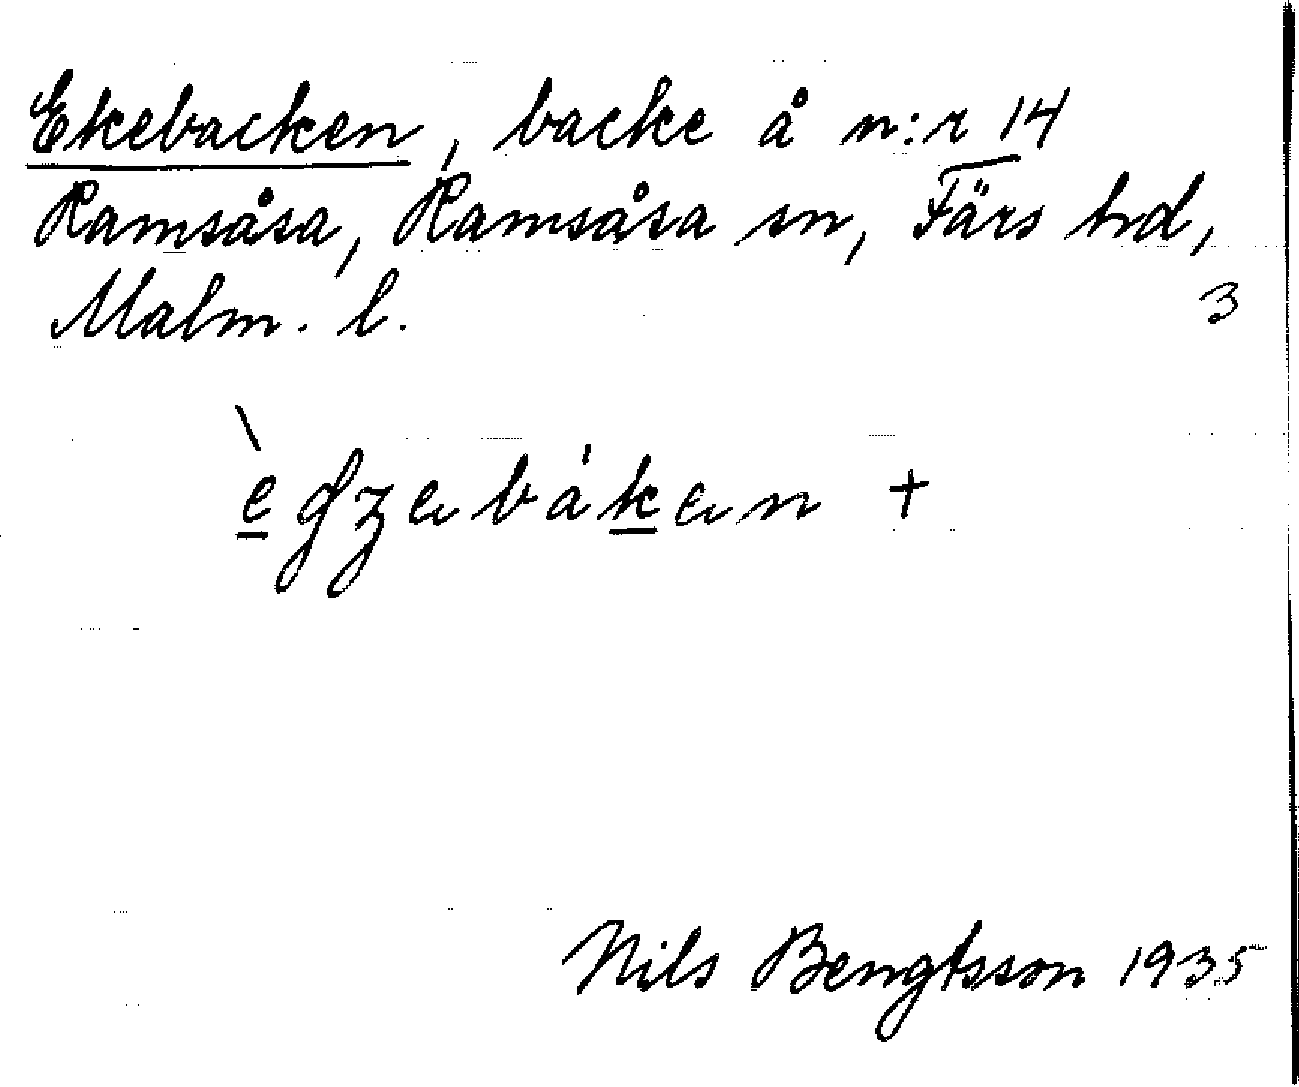 Ekebacken, backe å n:r 14
Ramsåsa, Ramsåsa sn, Färs hd,
Malm. l.
3
Nils Bengtsson 1935